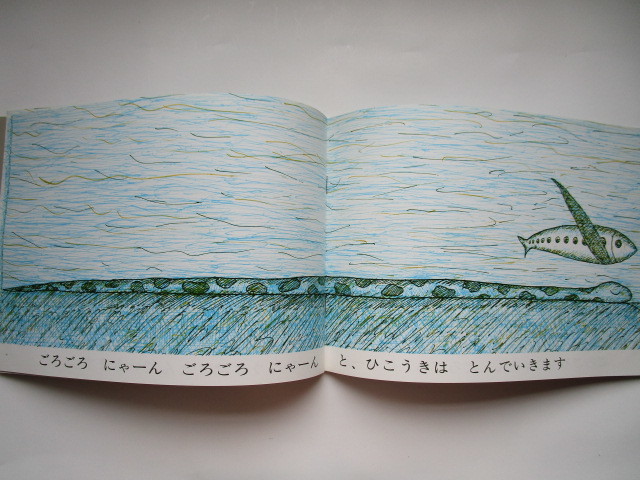 ごろごろ にゃーん ごろごろ にゃーん と、ひこうきは とんでいきます